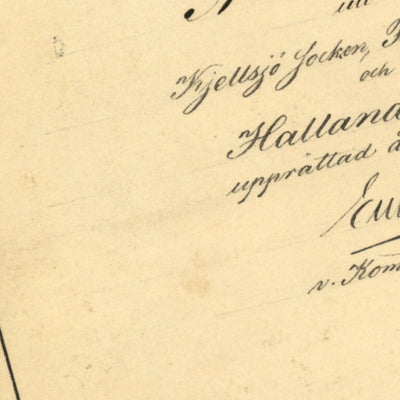 Kjellsjö Socken,
och
Halland
upprättad å
v. Kom